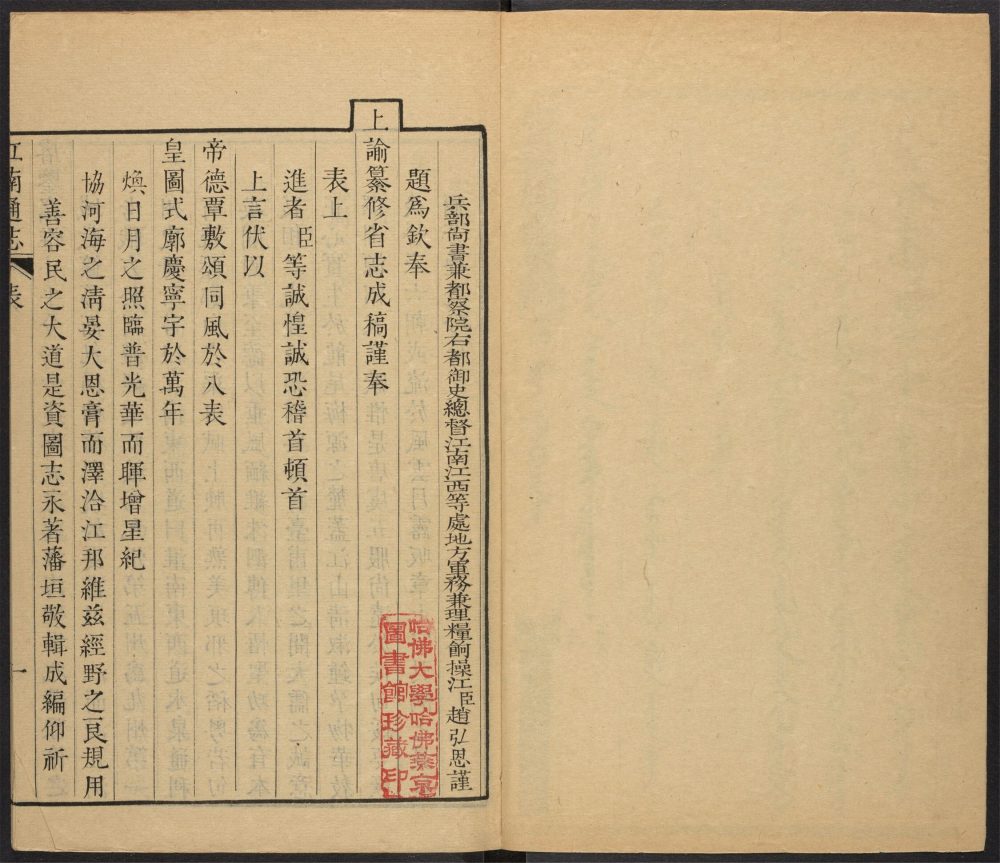 兵部尚書兼都察院右都御史總督江南江西等處地方軍務兼理糧餉操江臣趙弘恩謹
題為欽奉
上諭纂修省志成稿謹奉
表上
進者臣等誠惶誠恐稽首頓首
上言伏以
帝德覃敷頌同風於八表
皇圖式廓慶寧宇於萬年
煥日月之照臨普光華而暉增星紀
協河海之淸晏大恩膏而澤洽江邦維茲經野之良規用
善容民之大道是資圖志永著藩垣敬輯成編仰祈
江南通志 表 一
哈佛大學哈佛燕京
圖書館珍藏印